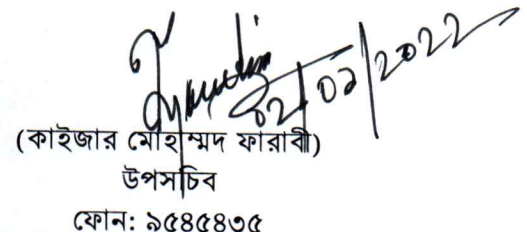 02/02/2022
(কাইজার মোহাম্মদ ফারাবী)
উপসচিব
ফোন: ৯৫৪৫৪৩৫